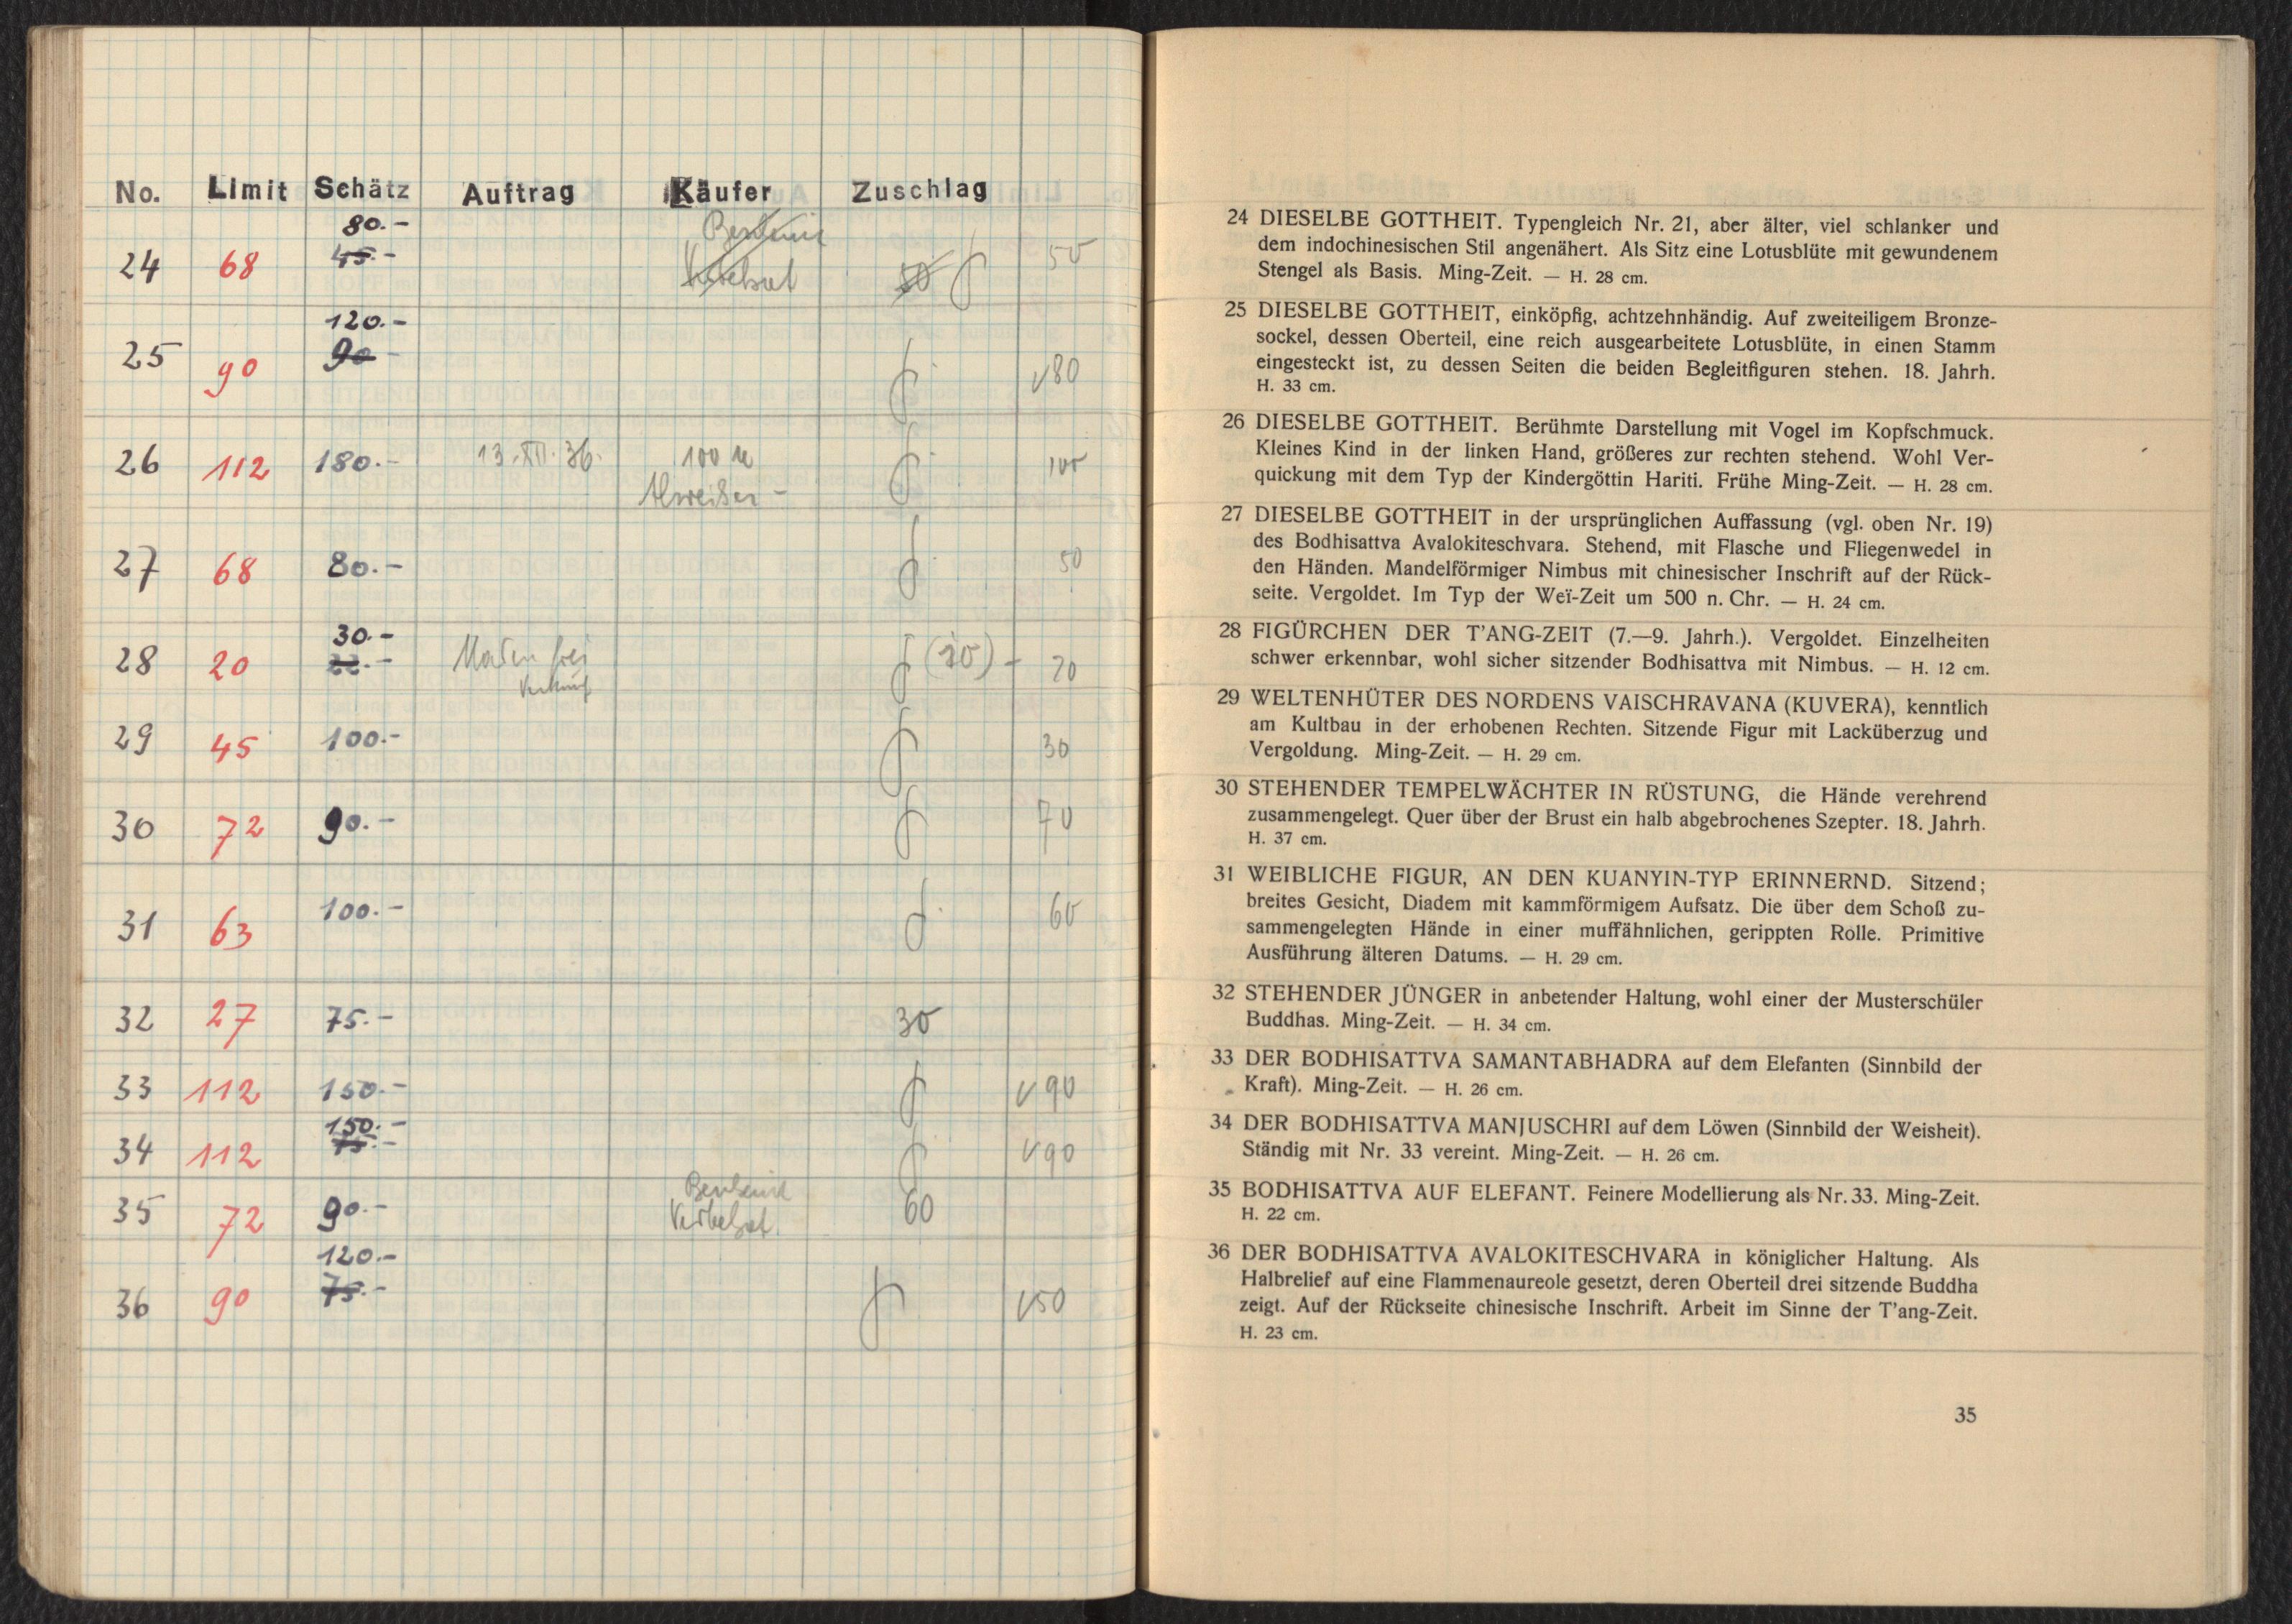 No. Limit Schätz Auftrag Käufer Zuschlag
80.-
24 68 45.- 50 50
120.-
25 90 90 - 80
26 112 180.- 13.XII.36. 100 100
27 68 80.- 50
30.-
28 20 22.- frei (20) - 20
Verkauf
29 45 100.- 30
30 72 90.- 70
31 63 100.- 60
32 27 75.- 30
33 112 150.- 90
150.-
34 112 75.- 90
35 72 90.- 60
120.-
36 90 75.- 50
24 DIESELBE GOTTHEIT. Typengleich Nr. 21, aber älter, viel schlanker und
dem indochinesischen Stil angenähert. Als Sitz eine Lotusblüte mit gewundenem
Stengel als Basis. Ming-Zeit. — H. 28 cm.
25 DIESELBE GOTTHEIT, einköpfig, achtzehnhändig. Auf zweiteiligem Bronze-
sockel, dessen Oberteil, eine reich ausgearbeitete Lotusblüte, in einen Stamm
eingesteckt ist, zu dessen Seiten die beiden Begleitfiguren stehen. 18. Jahrh.
H. 33 cm.
26 DIESELBE GOTTHEIT. Berühmte Darstellung mit Vogel im Kopfschmuck.
Kleines Kind in der linken Hand, größeres zur rechten stehend. Wohl Ver-
quickung mit dem Typ der Kindergöttin Hariti. Frühe Ming-Zeit. — H. 28 cm.
27 DIESELBE GOTTHEIT in der ursprünglichen Auffassung (vgl. oben Nr. 19)
des Bodhisattva Avalokiteschvara. Stehend, mit Flasche und Fliegenwedel in
den Händen. Mandelförmiger Nimbus mit chinesischer Inschrift auf der Rück-
seite. Vergoldet. Im Typ der Weï-Zeit um 500 n. Chr. — H. 24 cm.
28 FIGÜRCHEN DER T'ANG-ZEIT (7.—9. Jahrh.). Vergoldet. Einzelheiten
schwer erkennbar, wohl sicher sitzender Bodhisattva mit Nimbus. — H. 12 cm.
29 WELTENHÜTER DES NORDENS VAISCHRAVANA (KUVERA), kenntlich
am Kultbau in der erhobenen Rechten. Sitzende Figur mit Lacküberzug und
Vergoldung. Ming-Zeit. — H. 29 cm.
30 STEHENDER TEMPELWÄCHTER IN RÜSTUNG, die Hände verehrend
zusammengelegt. Quer über der Brust ein halb abgebrochenes Szepter. 18. Jahrh.
H. 37 cm.
31 WEIBLICHE FIGUR, AN DEN KUANYIN-TYP ERINNERND. Sitzend;
breites Gesicht, Diadem mit kammförmigem Aufsatz. Die über dem Schoß zu-
sammengelegten Hände in einer muffähnlichen, gerippten Rolle. Primitive
Ausführung älteren Datums. — H. 29 cm.
32 STEHENDER JÜNGER in anbetender Haltung, wohl einer der Musterschüler
Buddhas. Ming-Zeit. — H. 34 cm.
33 DER BODHISATTVA SAMANTABHADRA auf dem Elefanten (Sinnbild der
Kraft). Ming-Zeit. — H. 26 cm.
34 DER BODHISATTVA MANJUSCHRI auf dem Löwen (Sinnbild der Weisheit).
Ständig mit Nr. 33 vereint. Ming-Zeit. — H. 26 cm.
35 BODHISATTVA AUF ELEFANT. Feinere Modellierung als Nr. 33. Ming-Zeit.
H. 22 cm.
36 DER BODHISATTVA AVALOKITESCHVARA in königlicher Haltung. Als
Halbrelief auf eine Flammenaureole gesetzt, deren Oberteil drei sitzende Buddha
zeigt. Auf der Rückseite chinesische Inschrift. Arbeit im Sinne der T'ang-Zeit.
H. 23 cm.
35